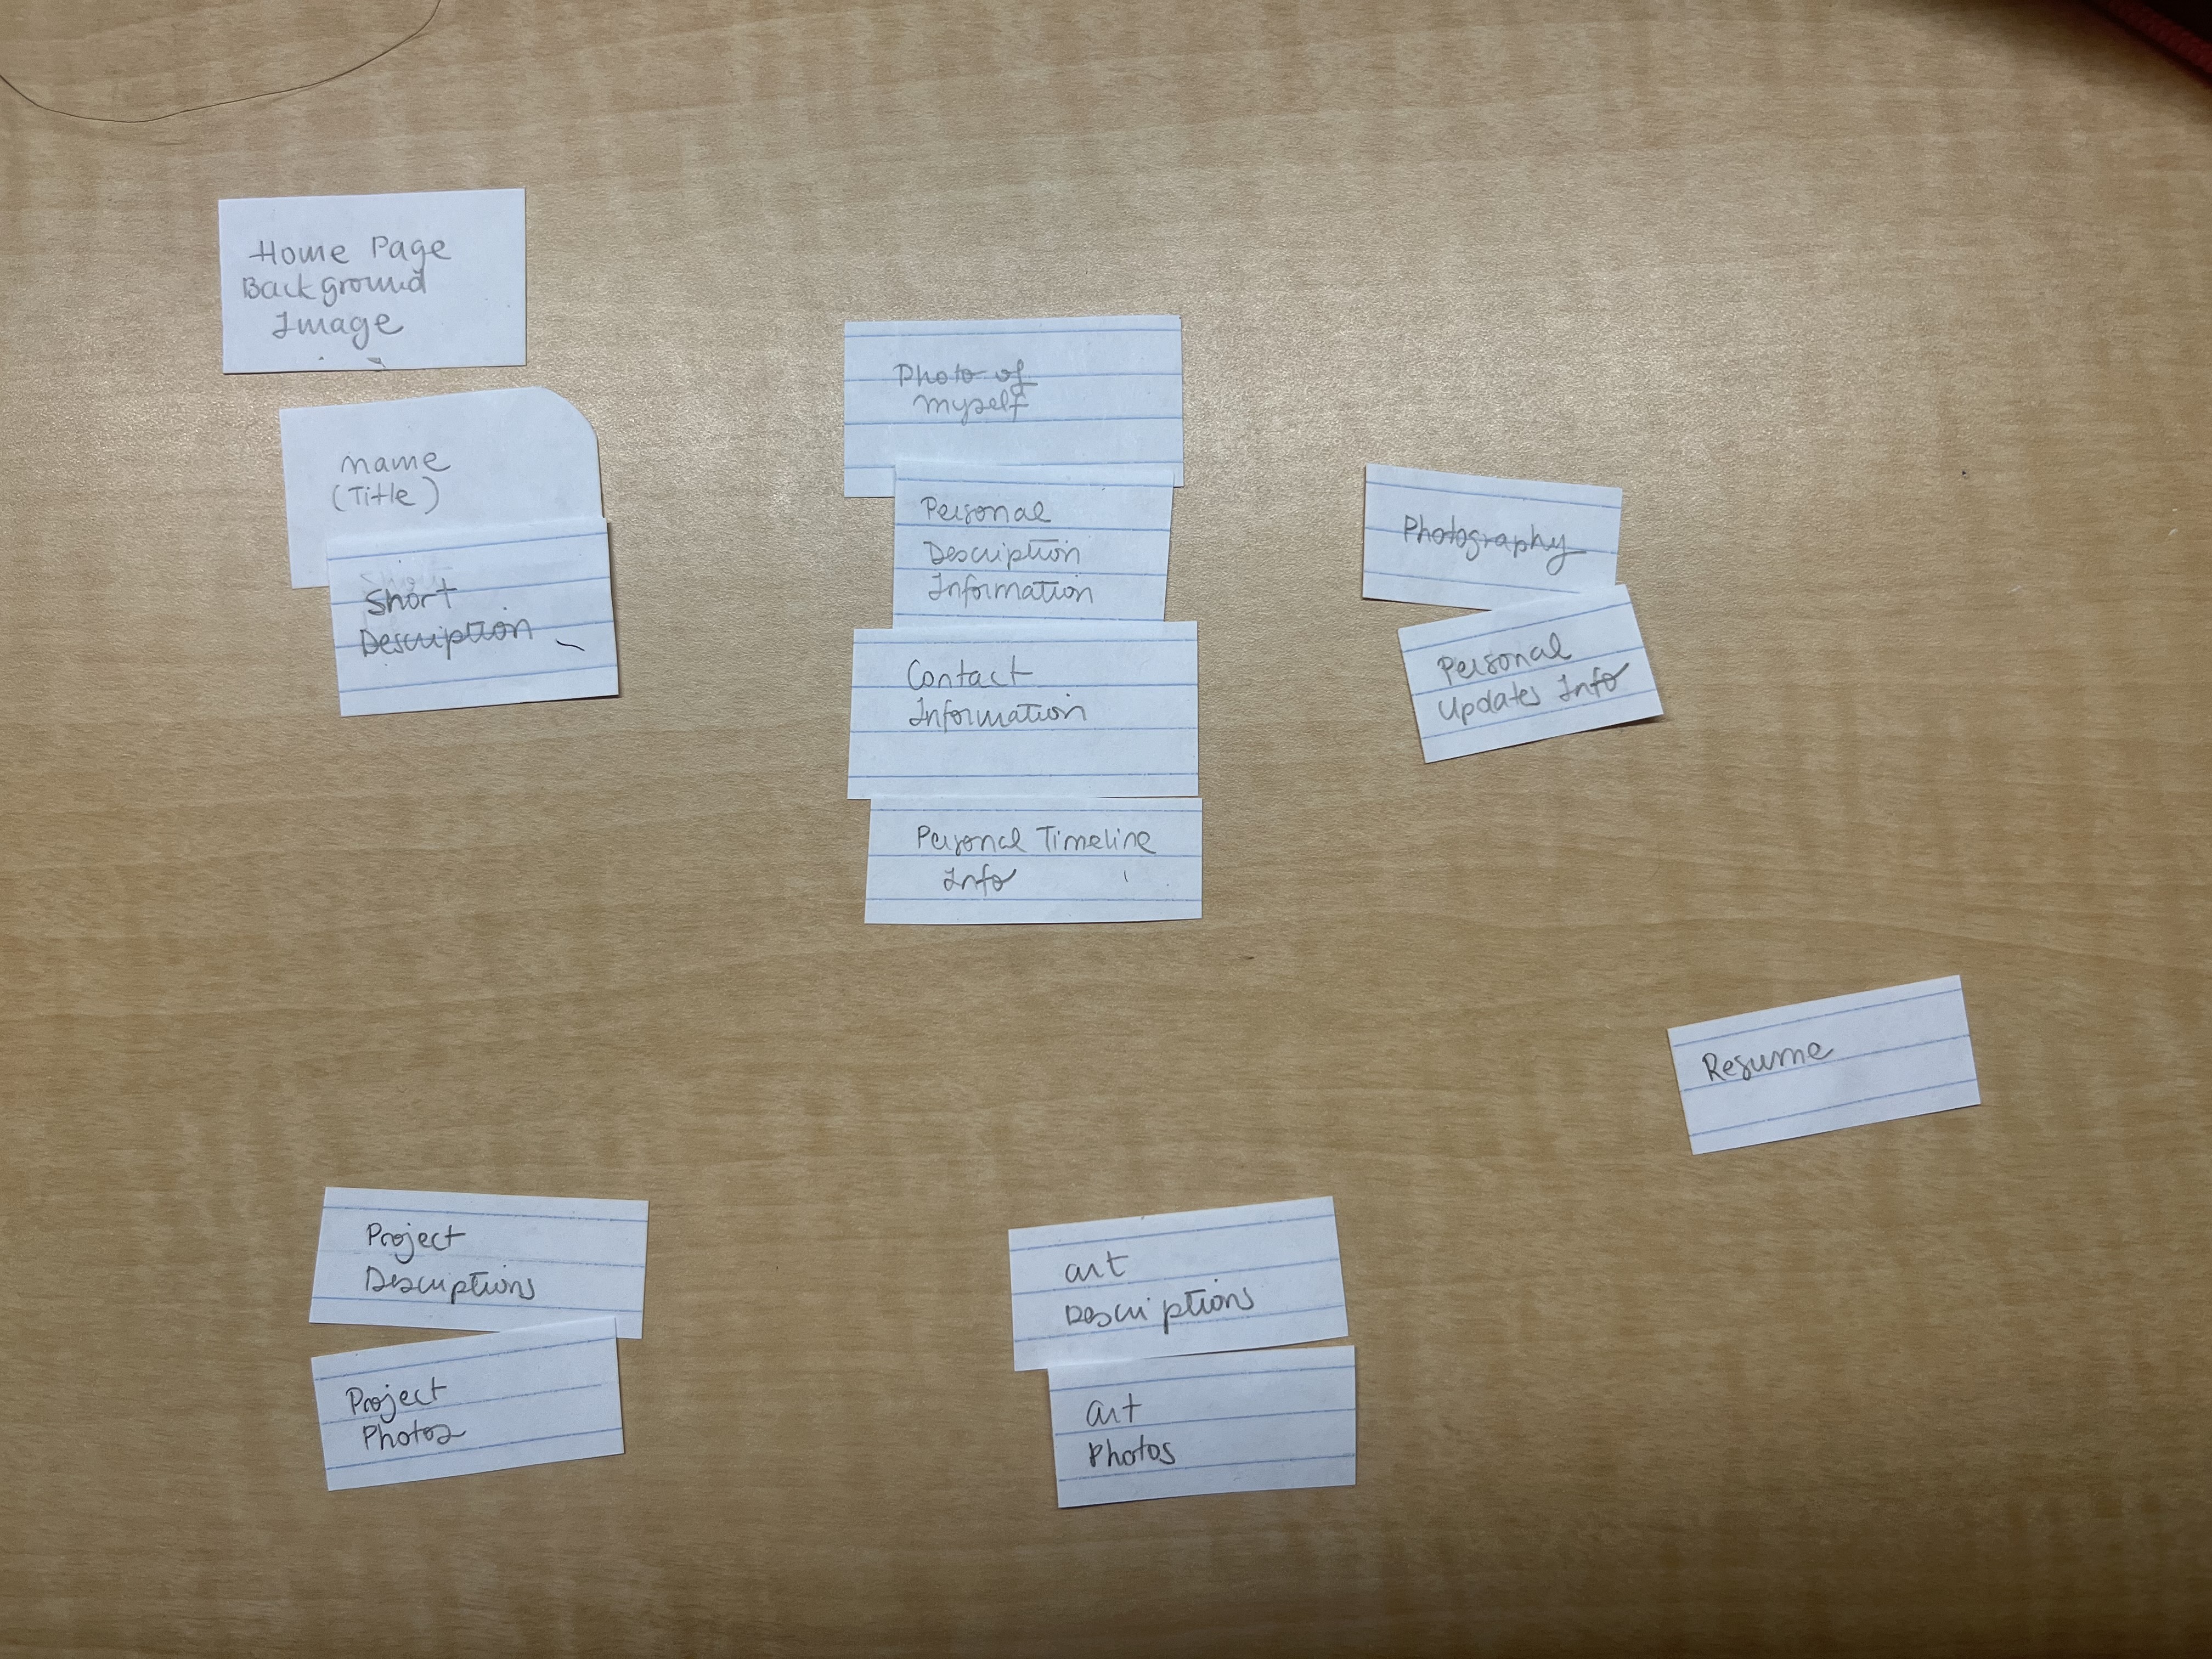 Home Page
Background
Image
name
(Title)
Short
Description
Photo of
myself
Personal
Description
Information
Contact
Information
Personal Timeline
Info
Photography
Personal
Updates Info
Resume
Project
Descriptions
Project
Photos
art
Descriptions
art
Photos